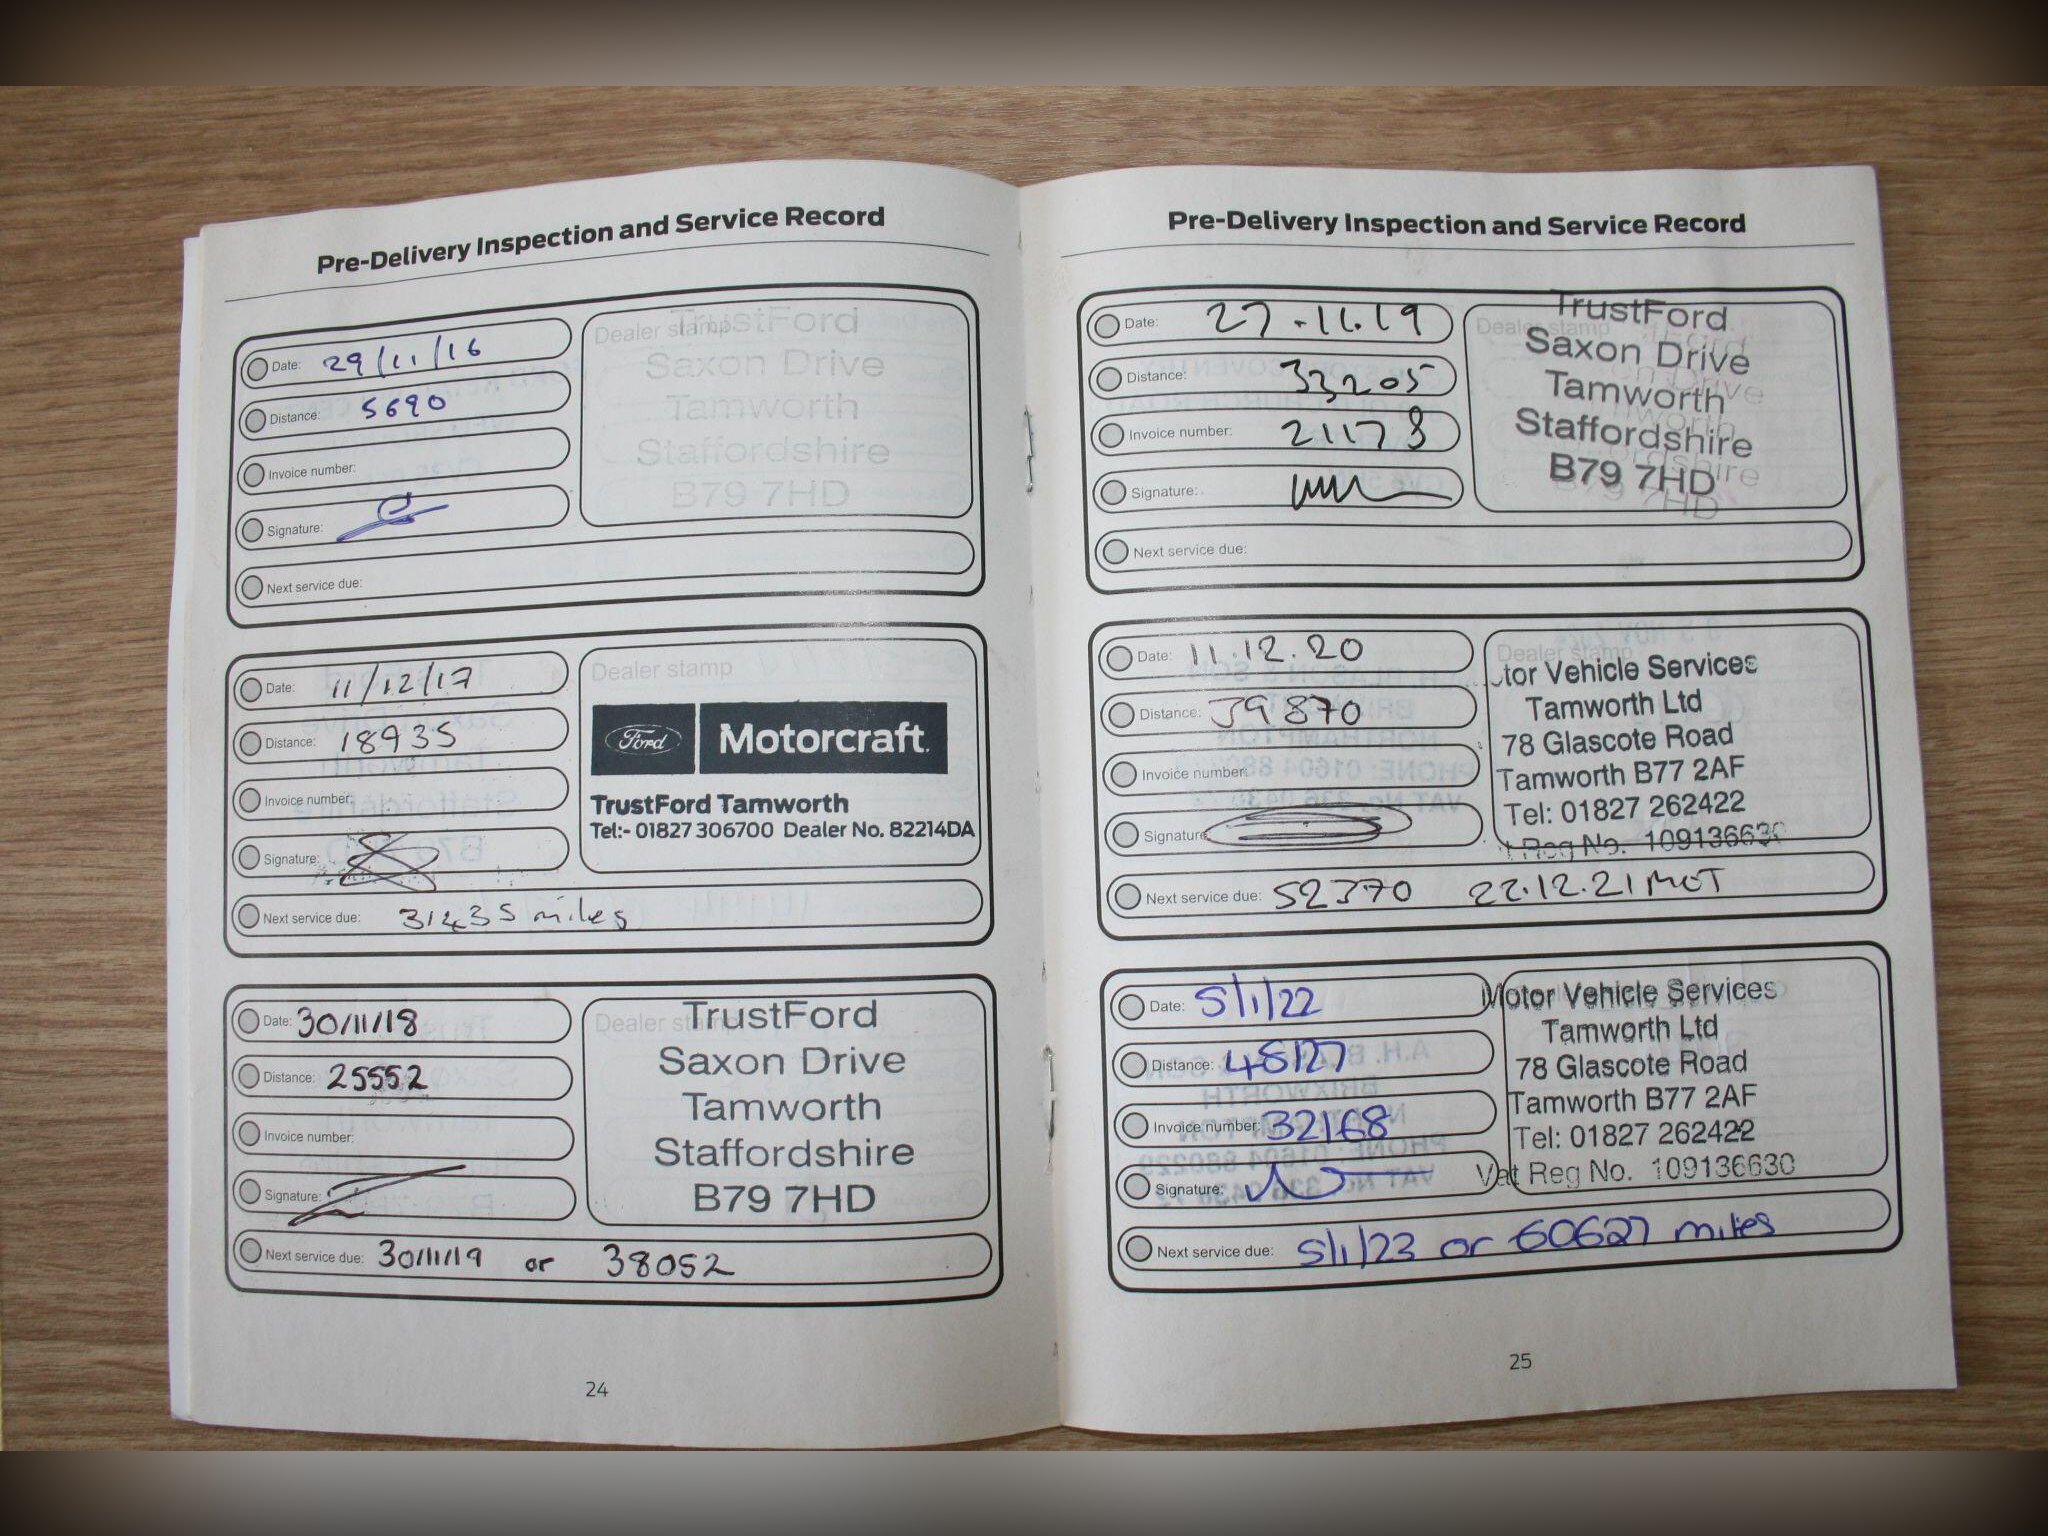 Pre-Delivery Inspection and Service Record
Date: 29/11/16
Distance: 5690
Invoice number:
Signature:
Next service due:
Dealer stamp
TrustFord
Saxon Drive
Tamworth
Staffordshire
B79 7HD
Date: 11/12/17
Distance: 18935
Invoice number:
Signature:
Next service due: 31435 miles
Dealer stamp
Ford Motorcraft
TrustFord Tamworth
Tel:- 01827 306700 Dealer No. 82214DA
Date: 30/11/18
Distance: 25552
Invoice number:
Signature:
Next service due: 30/11/19 or 38052
Dealer stamp
TrustFord
Saxon Drive
Tamworth
Staffordshire
B79 7HD
24
Pre-Delivery Inspection and Service Record
Date: 27.11.19
Distance: 33205
Invoice number: 21178
Signature:
Next service due:
Dealer stamp
TrustFord
Saxon Drive
Tamworth
Staffordshire
B79 7HD
Date: 11.12.20
Distance: 39870
Invoice number:
Signature
Next service due: 52370 22.12.21 MOT
Dealer stamp
tor Vehicle Services
Tamworth Ltd
78 Glascote Road
Tamworth B77 2AF
Tel: 01827 262422
t Reg No. 109136630
Date: 5/1/22
Distance: 48127
Invoice number: 32168
Signature:
Next service due: 5/1/23 or 60627 miles
Motor Vehicle Services
Tamworth Ltd
78 Glascote Road
Tamworth B77 2AF
Tel: 01827 262422
Vat Reg No. 109136630
25